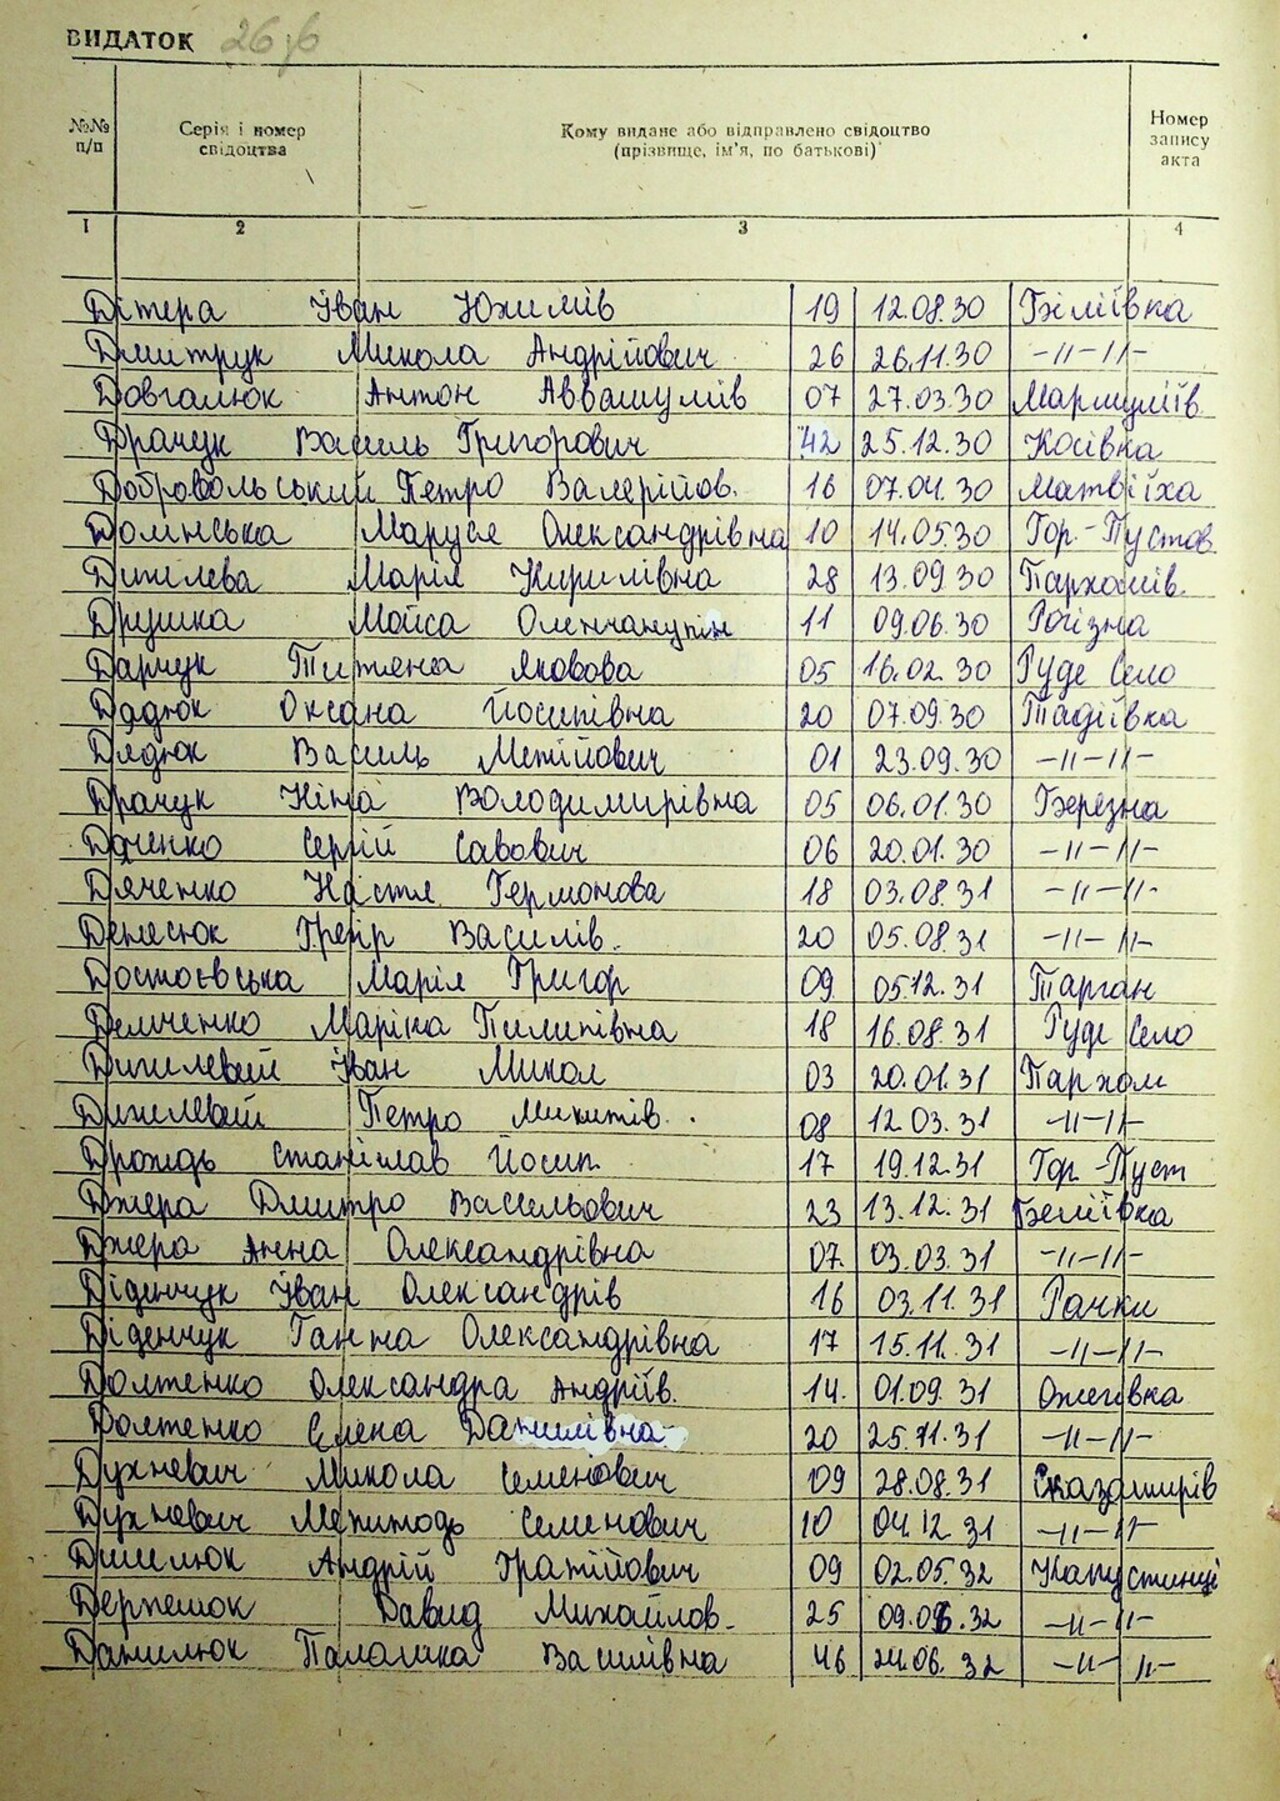 ВИДАТОК 26зб
№№ п/п
Серія і номер свідоцтва
Кому видане або відправлено свідоцтво (прізвище, ім'я, по батькові)
Номер запису акта
1 2 3 4
Дітера Іван Юхимів 19 12.08.30 Біліївка
Дмитрук Микола Андрійович 26 26.11.30 -//-//-
Довгалюк Антон Аввакумів 07 27.03.30 Мармуліїв
Драчук Василь Григорович 42 25.12.30 Косівка
Добровольський Петро Валерійов. 16 07.04.30 Матвіїха
Долінська Маруся Олександрівна 10 14.05.30 Гор.-Пустов
Дишлева Марія Кирилівна 28 13.09.30 Пархомів.
Друшка Мойса 11 09.06.30 Рогізна
Дарчук Титяна Яковова 05 16.02.30 Руде Село
Дядюк Оксана Йосипівна 20 07.09.30 Тадіївка
Дядюк Василь Метійович 01 23.09.30 -//-//-
Драчук Ніна Володимирівна 05 06.01.30 Березна
Даченко Сергій Савович 06 20.01.30 -//-//-
Дяченко Настя Гермонова 18 03.08.31 -//-//-
Денесюк Грегір Василів. 20 05.08.31 -//-//-
Достоєвська Марія Григор 09 05.12.31 Тарган
Демченко Маріка Пилипівна 18 16.08.31 Руде Село
Дишлевий Іван Микол 03 20.01.31 Пархом
Дишлевий Петро Микитів. 08 12.03.31 -//-//-
Дрождь Станіслав Йосип. 17 19.12.31 Гор.-Пуст
Джера Дмитро Васильович 23 13.12.31 Беліївка
Джера Анна Олександрівна 07. 03.03.31 -//-//-
Діденчук Іван Олександрів 16 03.11.31 Рачки
Діденчук Ганна Олександрівна 17 15.11.31 -//-//-
Долтенко Олександра Андріїв. 14. 01.09.31 Ожегівка
Долтенко Єлена Данилівна 20 25.11.31 -//-//-
Духневич Микола Семенович 09 28.08.31
Духневич Семенович 10 04.12.31 -//-//-
Дишлюк Андрій 09 02.05.32 Капустинці
Давид Михайлов. 25 09.06.32 -//-//-
Данилюк Палашка Василівна 46 24.06.32 -//-//-